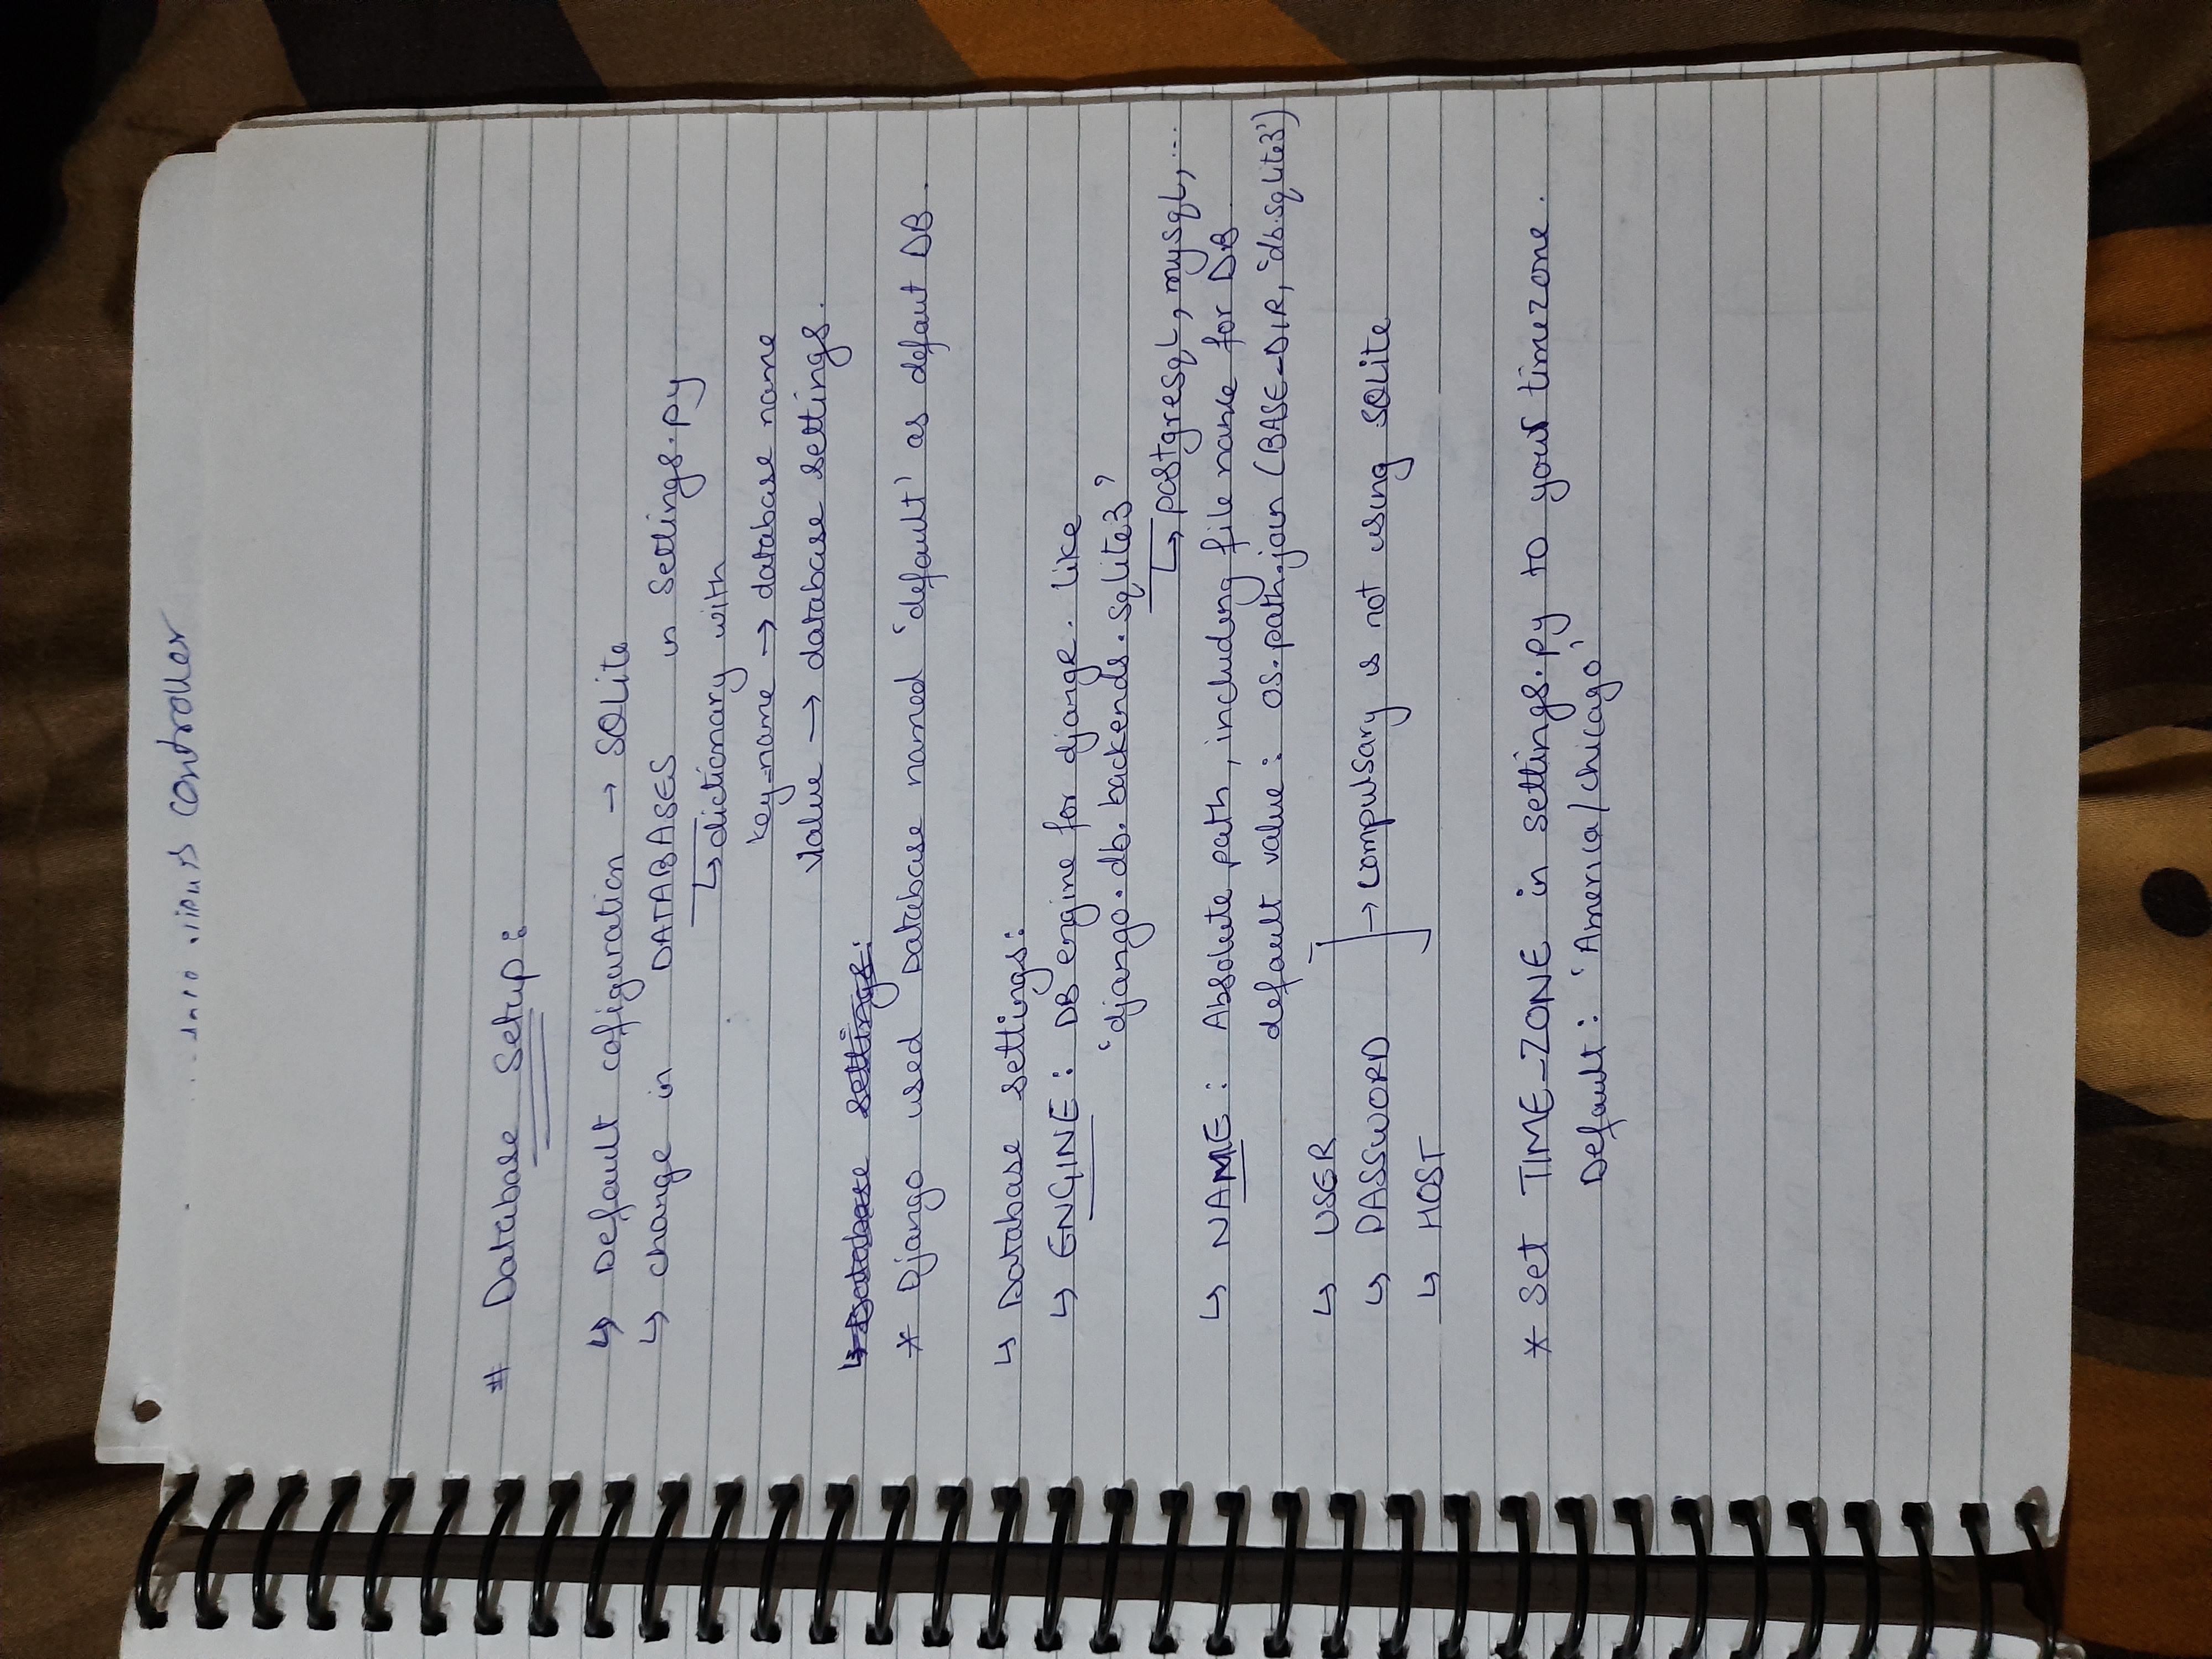 controller
# Database Setup:
↳ Default cofiguration → SQLite
↳ change in DATABASES in Settings.py
↳ dictionary with
key-name → database name
Value → database settings.
↳ Database settings:
* Django used Database named 'default' as defaut DB.
↳ Database settings:
↳ ENGINE: DB engine for django. like
'django.db.backends.sqlite3'
↳ postgresql, mysql, ...
↳ NAME: Absolute path, including file name for DB
default value: os.path.join (BASE_DIR, 'db.sqlite3')
↳ USER
↳ PASSWORD → compulsary is not using SQLite
↳ HOST
* Set TIME_ZONE in settings.py to your timezone.
Default: 'America/chicago'